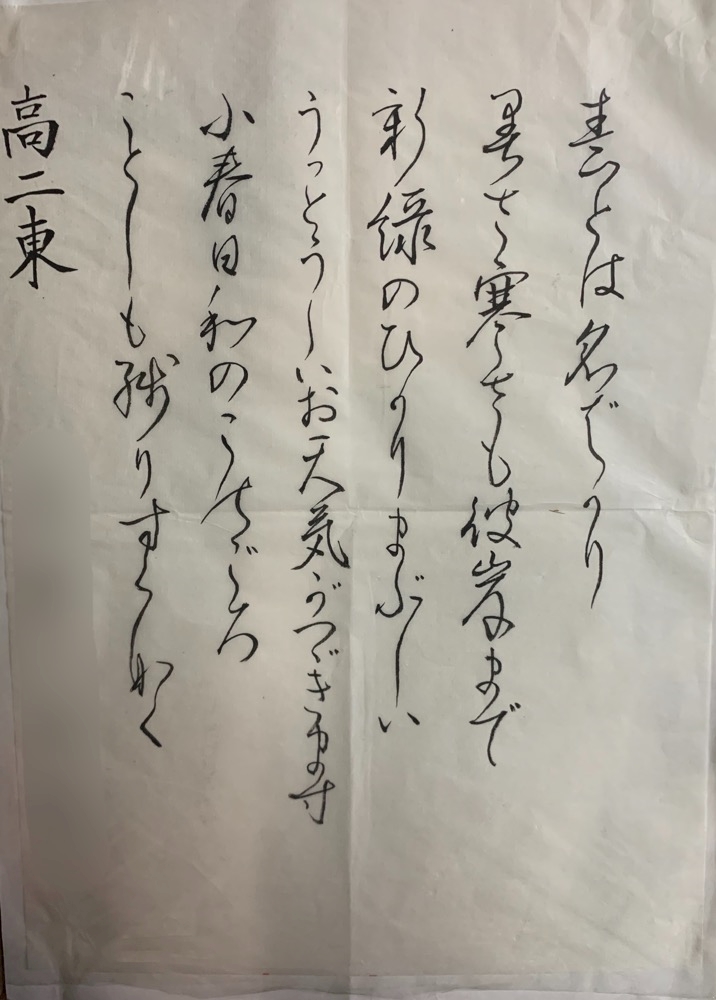 春とは名ばかり
暑さ寒さも彼岸まで
新緑のひかりまぶしい
うっとうしいお天気がつづきます
小春日和のこのごろ
ことしも残りすくなく
高二東